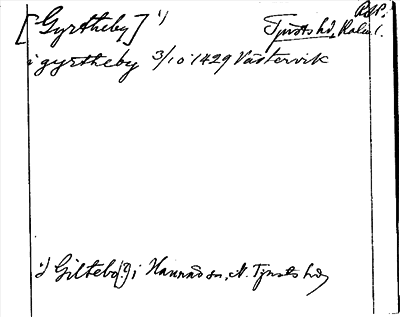 [Gyrtheby] 1)
Tjusts hd, Kalm l.
i gyrtheby 3/10 1429 Västervik
1) Giltebo(?) i Hannäs sn, N. Tjusts hd